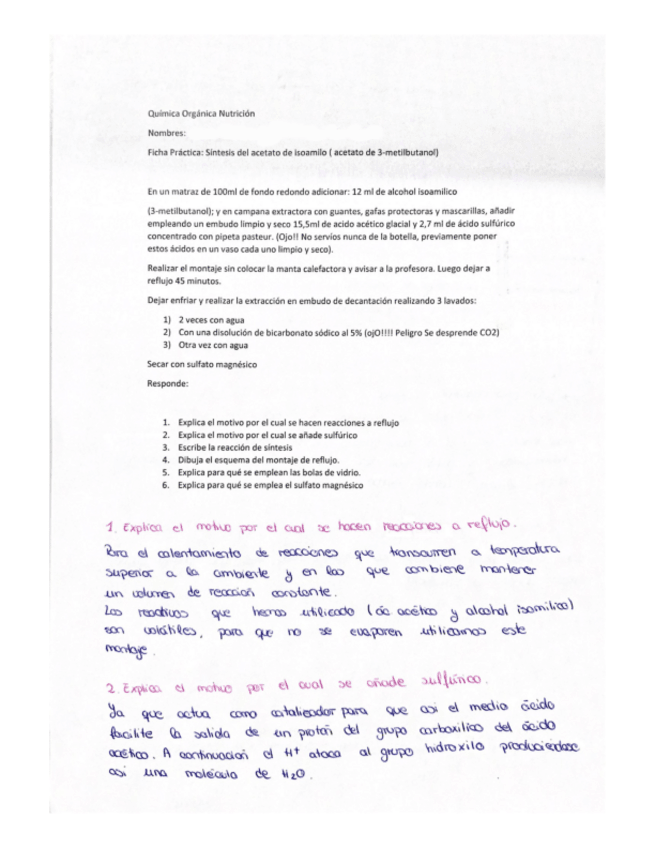 Química Orgánica Nutrición
Nombres:
Ficha Práctica: Síntesis del acetato de isoamilo ( acetato de 3-metilbutanol)
En un matraz de 100ml de fondo redondo adicionar: 12 ml de alcohol isoamilico
(3-metilbutanol); y en campana extractora con guantes, gafas protectoras y mascarillas, añadir
empleando un embudo limpio y seco 15,5ml de acido acético glacial y 2,7 ml de ácido sulfúrico
concentrado con pipeta pasteur. (Ojo!! No serviros nunca de la botella, previamente poner
estos ácidos en un vaso cada uno limpio y seco).
Realizar el montaje sin colocar la manta calefactora y avisar a la profesora. Luego dejar a
reflujo 45 minutos.
Dejar enfriar y realizar la extracción en embudo de decantación realizando 3 lavados:
1) 2 veces con agua
2) Con una disolución de bicarbonato sódico al 5% (ojO!!!! Peligro Se desprende CO2)
3) Otra vez con agua
Secar con sulfato magnésico
Responde:
1. Explica el motivo por el cual se hacen reacciones a reflujo
2. Explica el motivo por el cual se añade sulfúrico
3. Escribe la reacción de síntesis
4. Dibuja el esquema del montaje de reflujo.
5. Explica para qué se emplean las bolas de vidrio.
6. Explica para qué se emplea el sulfato magnésico
1. Explica el motivo por el cual se hacen reacciones a reflujo.
Para el calentamiento de reacciones que transcurren a temperatura
superior a la ambiente y en las que combiene mantener
un volumen de reacción constante.
Los reactivos que hemos utilizado (ác acético y alcohol isomílico)
son volátiles, para que no se evaporen utilizamos este
montaje.
2. Explica el motivo por el cual se añade sulfúrico.
Ya que actua como catalizador para que así el medio ácido
facilite la salida de un protón del grupo carboxílico del ácido
acético. A continuación el H+ ataca al grupo hidroxilo produciendose
así una molécula de H2O.